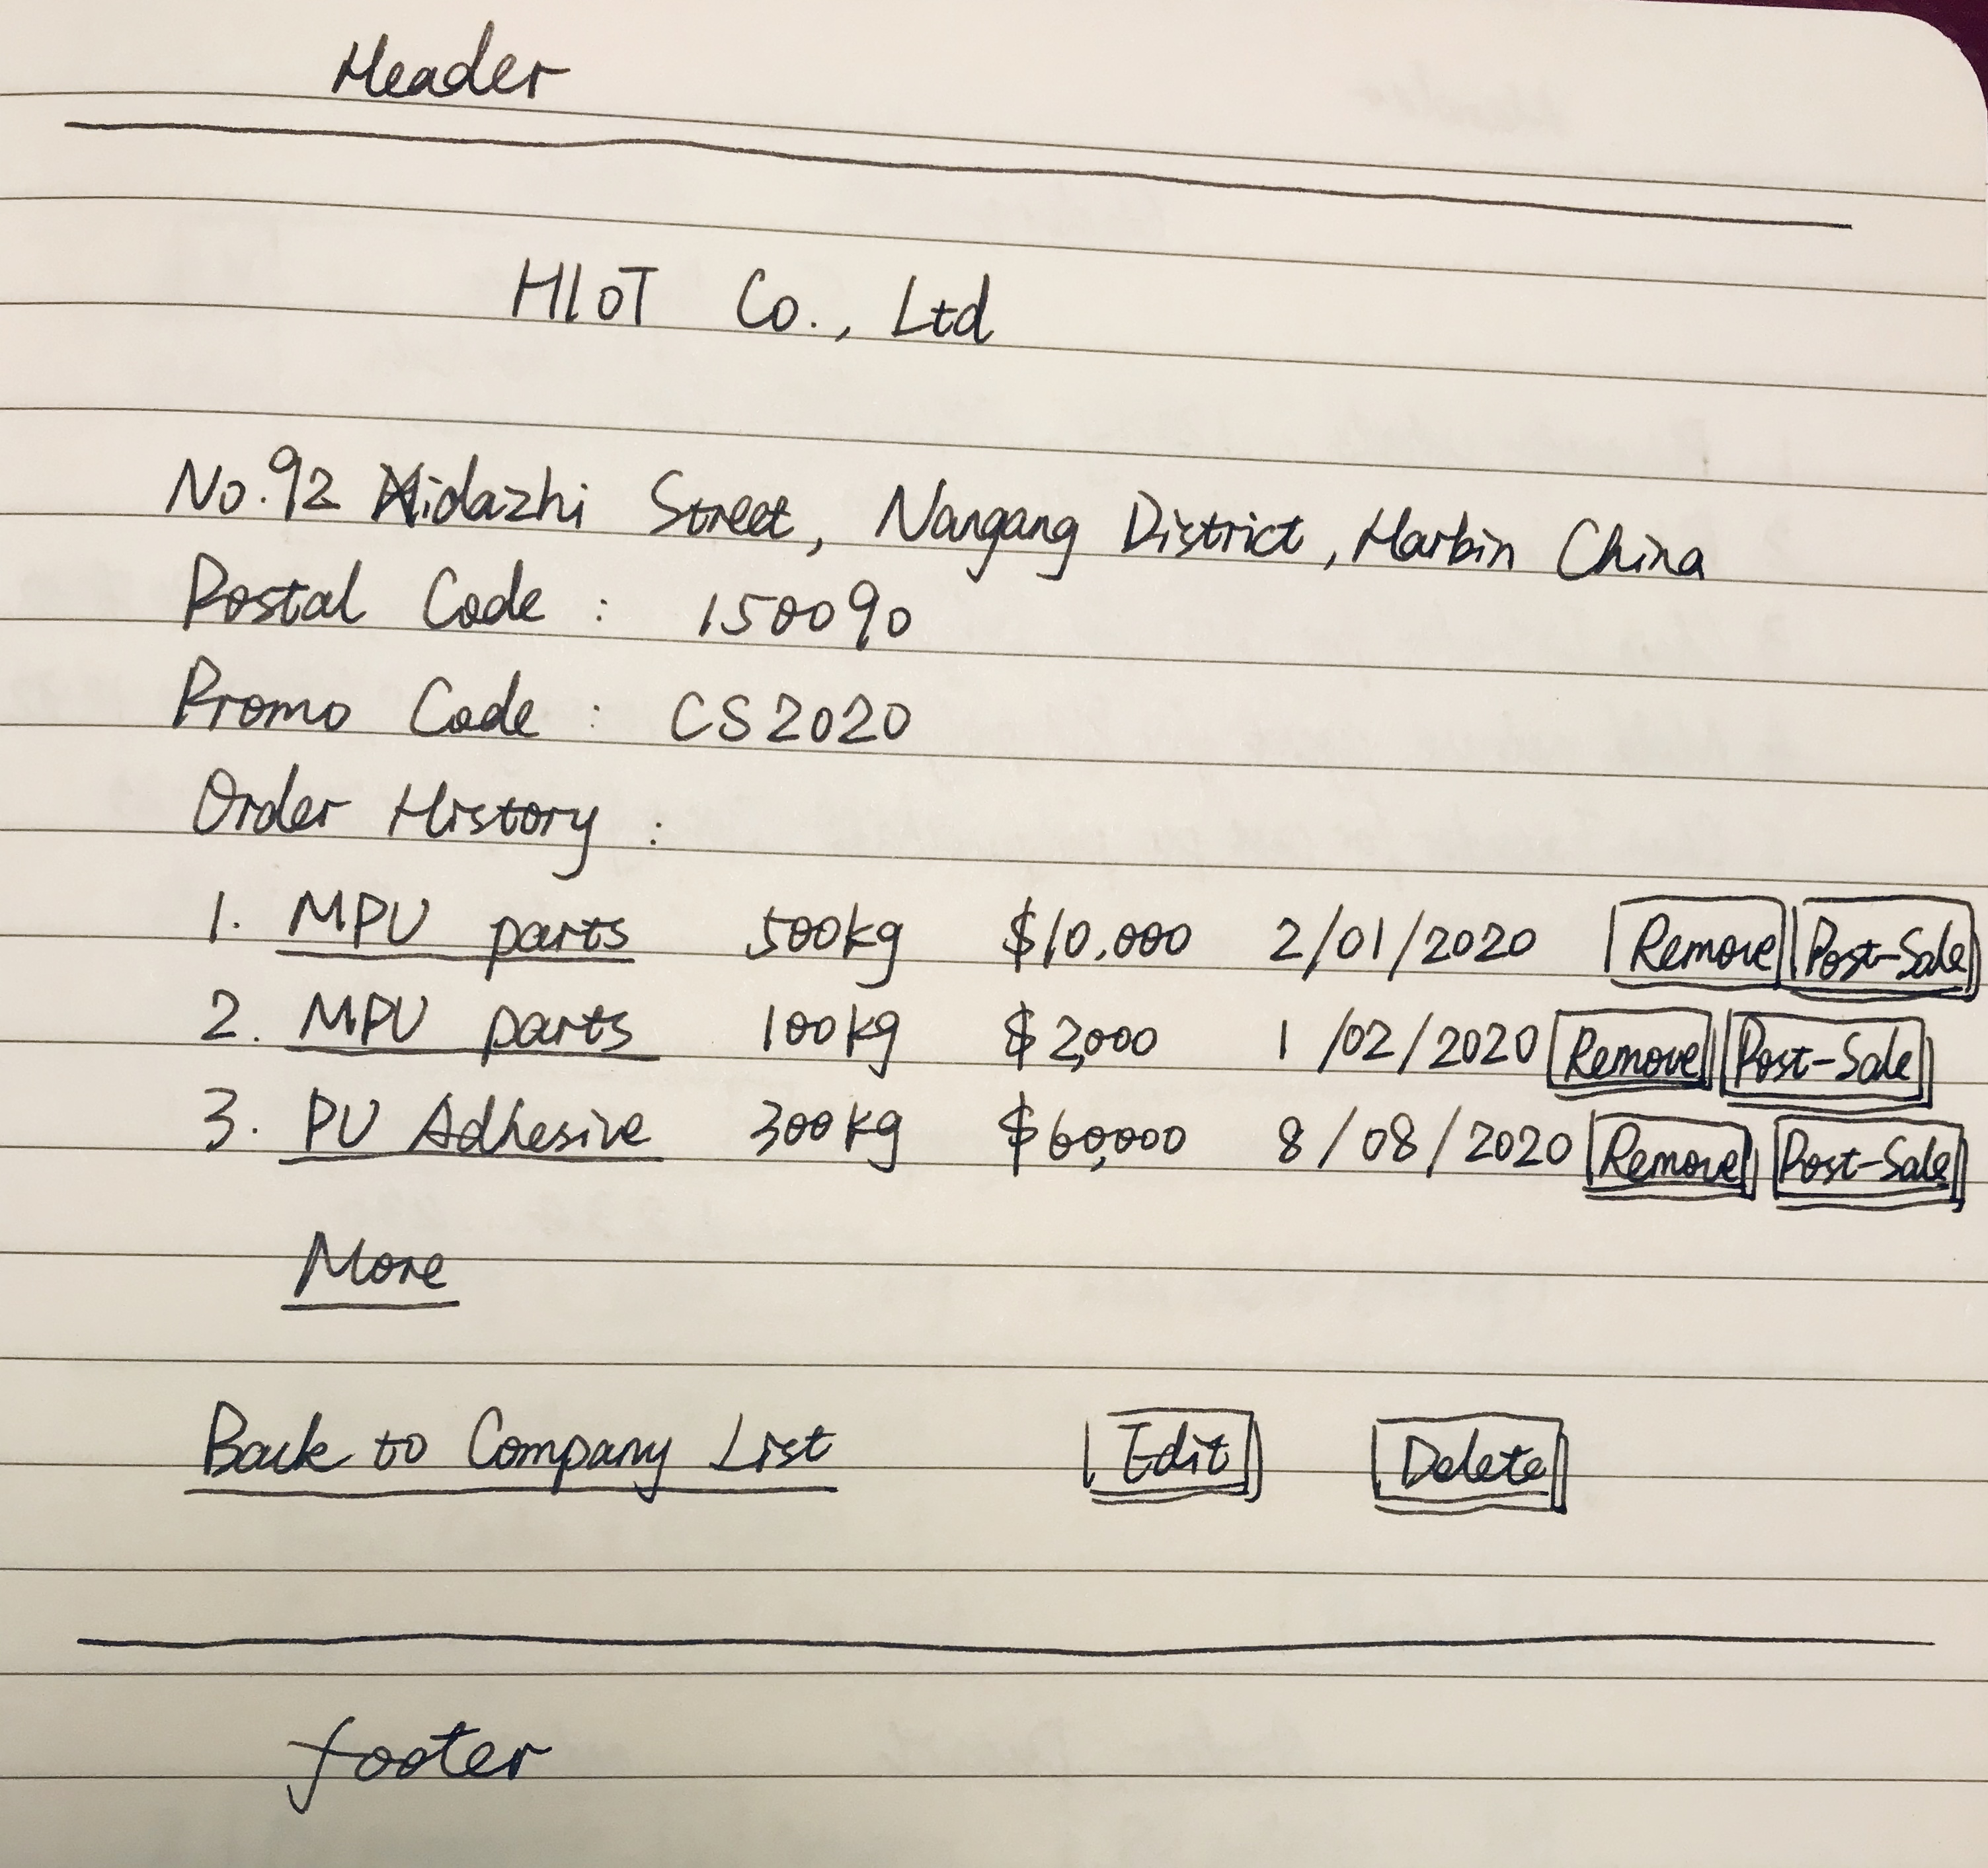 Header
HIOT Co., Ltd
No.92 Xidazhi Street, Nangang District, Harbin China
Postal Code : 150090
Promo Code : CS2020
Order History :
1. MPU parts 500kg $10,000 2/01/2020 Remove Post-Sale
2. MPU parts 100kg $2,000 1/02/2020 Remove Post-Sale
3. PU Adhesive 300kg $60,000 8/08/2020 Remove Post-Sale
More
Back to Company List Edit Delete
footer